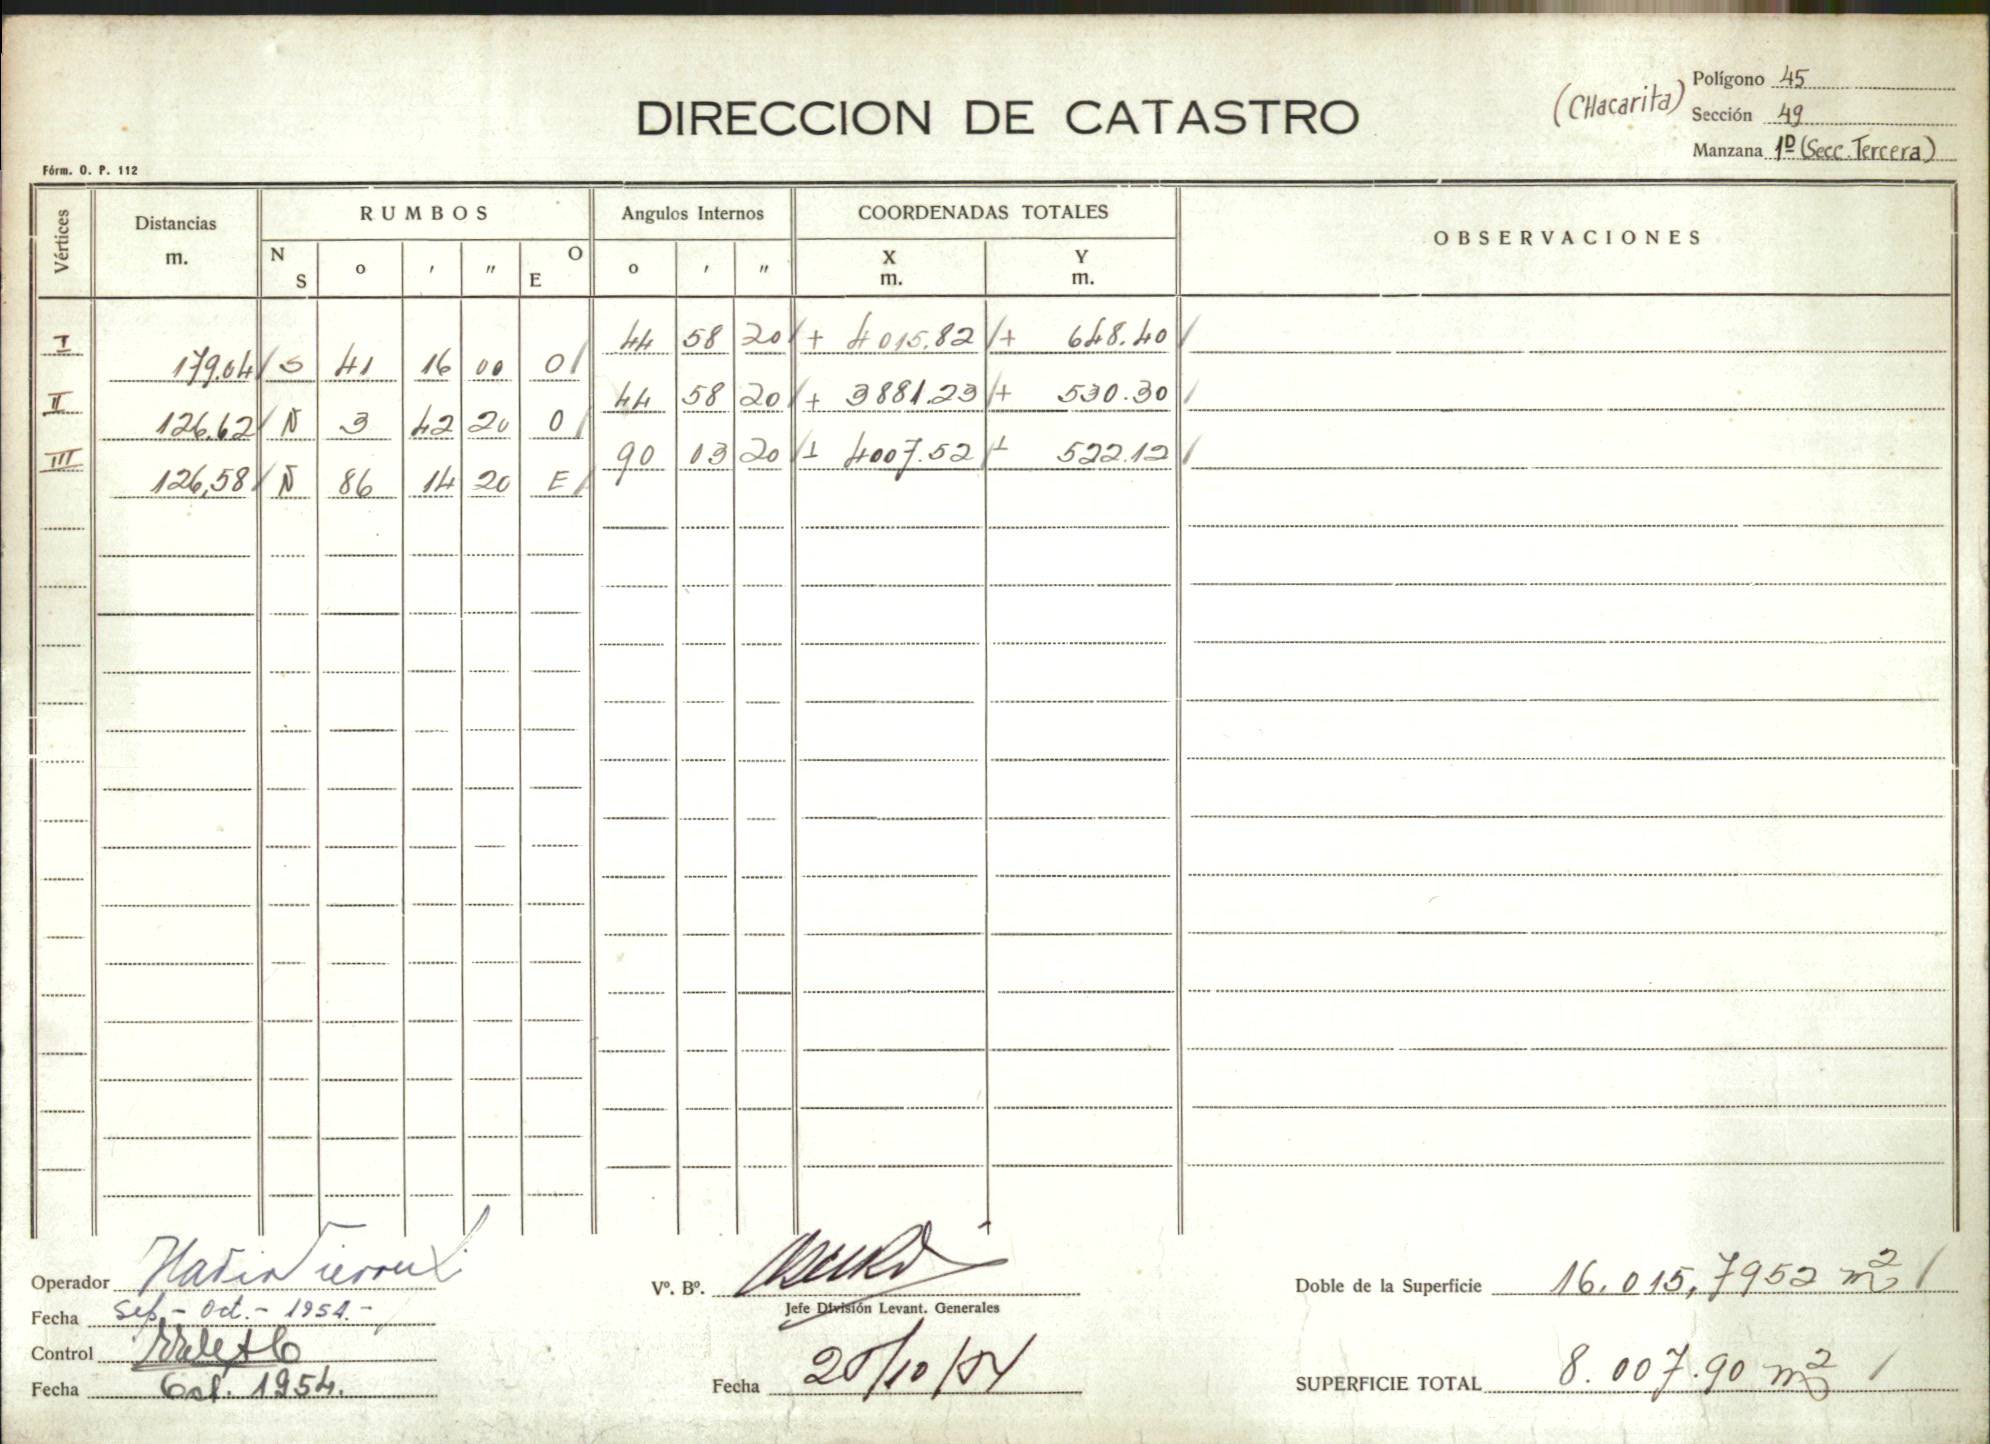 Polígono 45
DIRECCION DE CATASTRO
(CHacarita)
Sección 49
Manzana 1D (Secc. Tercera)
Fórm. O. P. 112
Vértices
Distancias
m.
RUMBOS
N
S
o
,
,,
O
E
Angulos Internos
o
,
,,
COORDENADAS TOTALES
X
m.
Y
m.
OBSERVACIONES
I 44 58 20 / + 4015.82 / + 648.40 /
179.04 / S 41 16 00 O /
II 44 58 20 / + 3881.23 / + 530.30 /
126.62 / N 3 42 20 O /
III 90 03 20 / + 4007.52 / + 522.12 /
126,58 / N 86 14 20 E /
Operador
Vº. Bº.
Doble de la Superficie 16.015,7952 m2 /
Jefe División Levant. Generales
Fecha Sep. - Oct. - 1954. -
Control
Fecha Oct. 1954.
Fecha 25/10/54
SUPERFICIE TOTAL 8.007.90 m2 /